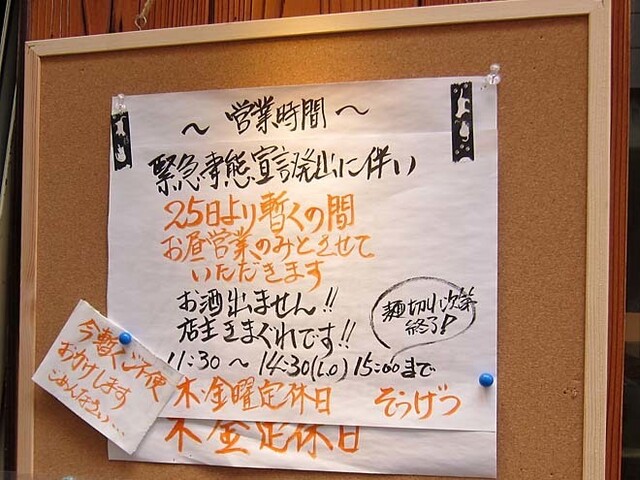 ～ 営業時間 ～
緊急事態宣言発出に伴い
25日より暫くの間
お昼営業のみとさせて
いただきます
お酒出ません!!
店主きまぐれです!!
麺切れ次第
終了!
11:30 ～ 14:30(L.O) 15:00まで
木・金曜定休日 そうげつ
木金定休日
今暫くご不便
おかけします
ごめんなさい…